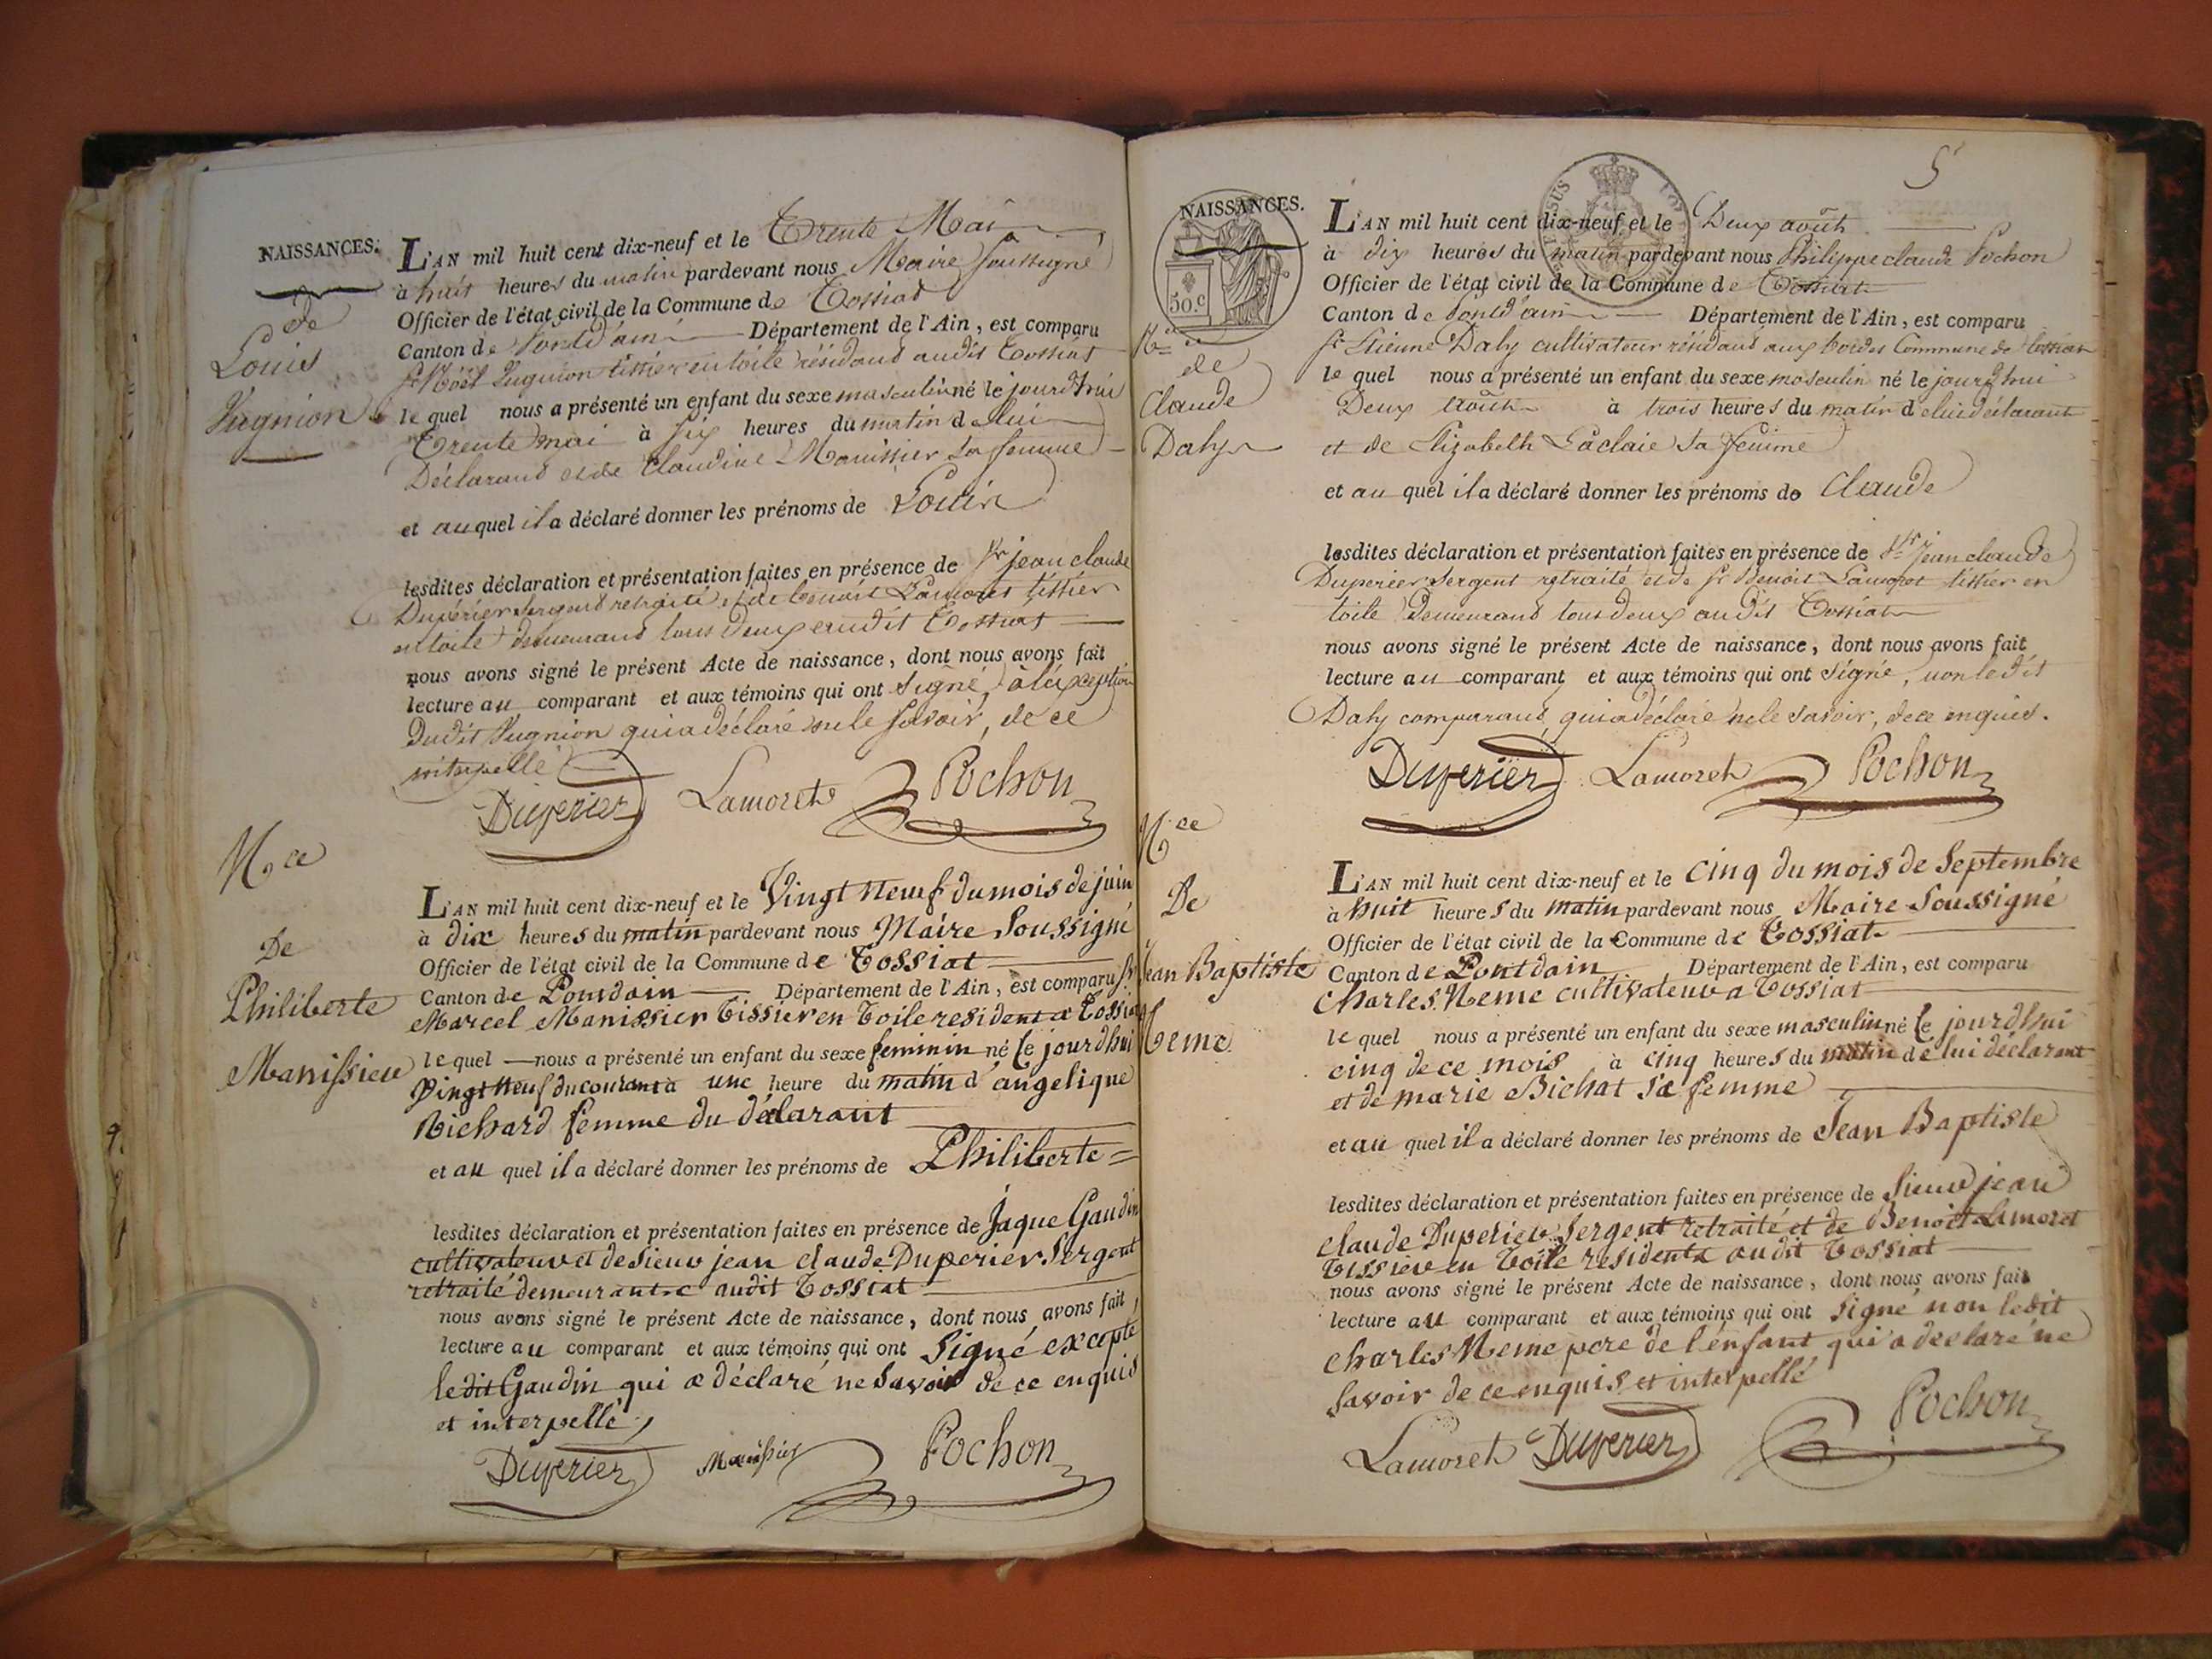 NAISSANCES.
de
Louis
Vugnion
L'AN mil huit cent dix-neuf et le Trente Mai
à huit heures du matin pardevant nous Maire soussigné
Officier de l'état civil de la Commune de Tossiat
Canton de Pontd'ain Département de l'Ain, est comparu
sr Noël Vugnion tissier en toile résidant audit Tossiat
le quel nous a présenté un enfant du sexe masculin né le jourd'hui
Trente mai à six heures du matin de lui
Déclarand et de Claudine Manissier sa femme
et auquel il a déclaré donner les prénoms de Louis
lesdites déclaration et présentation faites en présence de sr jean claude
Duperier sergent retraité et de benoit Lamoret tissier
en toile demeurand tous deux audit Tossiat
nous avons signé le présent Acte de naissance, dont nous avons fait
lecture au comparant et aux témoins qui ont signé, à l'exception
dudit Vugnion qui a déclaré ne le savoir, de ce
interpellé
Duperier Lamoret Pochon
N.ce
De
Philiberte
Manissieu
L'AN mil huit cent dix-neuf et le Vingt neuf du mois de juin
à dix heures du matin pardevant nous Maire Soussigné
Officier de l'état civil de la Commune de Tossiat
Canton de Pontdain Département de l'Ain, est comparu sr
Marcel Manissier Tissier en Toile resident a Tossiat
le quel nous a présenté un enfant du sexe feminin né le jourdhui
Vingt neuf du courant à une heure du matin d'angelique
Richard femme du déclarant
et au quel il a déclaré donner les prénoms de Philiberte
lesdites déclaration et présentation faites en présence de Jaque Gaudin
cultivateur et de Sieur jean claude Duperier Sergent
retraité demeurants audit Tossiat
nous avons signé le présent Acte de naissance, dont nous avons fait
lecture au comparant et aux témoins qui ont Signé excepté
ledit Gaudin qui a déclaré ne Savoir de ce enquis
et interpellé
Duperier Manissier Pochon
5
NAISSANCES.
50.c
N.ce
de
Claude
Daly
L'AN mil huit cent dix-neuf et le Deux août
à dix heures du matin pardevant nous Philippe claude Pochon
Officier de l'état civil de la Commune de Tossiat
Canton de Pontd'ain Département de l'Ain, est comparu
sr Etienne Daly cultivateur résidand aux bordes Commune de tossiat
le quel nous a présenté un enfant du sexe masculin né le jourd'hui
Deux août à trois heures du matin de lui déclarant
et de Elizabeth Laclaie sa femme
et au quel il a déclaré donner les prénoms de Claude
lesdites déclaration et présentation faites en présence de sr jean claude
Duperier sergent retraité et de sr Benoit Lamoret tissier en
toile Demeurand tous deux audit Tossiat
nous avons signé le présent Acte de naissance, dont nous avons fait
lecture au comparant et aux témoins qui ont signé, non ledit
Daly comparand, qui a déclaré ne le savoir, de ce enquis.
Duperier Lamoret Pochon
N.ce
De
Jean Baptiste
Neme
L'AN mil huit cent dix-neuf et le cinq du mois de Septembre
à huit heures du matin pardevant nous Maire Soussigné
Officier de l'état civil de la Commune de Tossiat
Canton de Pontdain Département de l'Ain, est comparu
Charles Neme cultivateur a Tossiat
le quel nous a présenté un enfant du sexe masculin né le jourdhui
cinq de ce mois à cinq heures du matin de lui déclarant
et de marie Bichat sa femme
et au quel il a déclaré donner les prénoms de Jean Baptiste
lesdites déclaration et présentation faites en présence de Sieur jean
claude Duperieu Sergent retraité et de Benoit Lamoret
Tissieu en Toile residents audit Tossiat
nous avons signé le présent Acte de naissance, dont nous avons fait
lecture au comparant et aux témoins qui ont Signé non ledit
Charles Neme pere de l'enfant qui a declaré ne
Savoir de ce enquis et interpellé
Lamoret Duperier Pochon